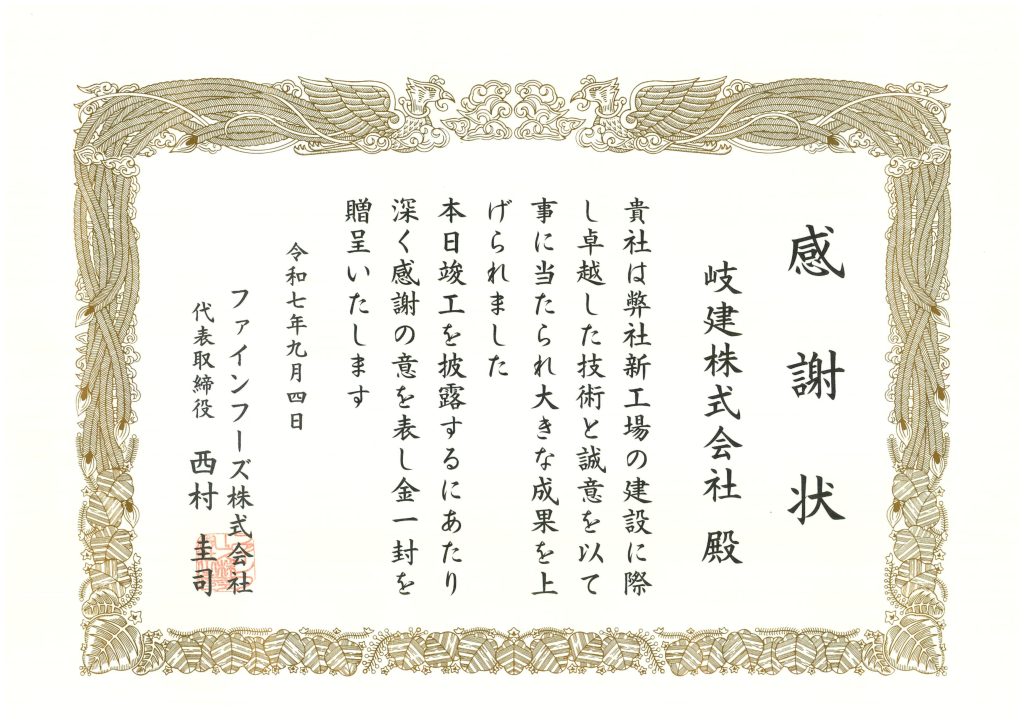 感謝状
岐建株式会社 殿
貴社は弊社新工場の建設に際
し卓越した技術と誠意を以て
事に当たられ大きな成果を上
げられました
本日竣工を披露するにあたり
深く感謝の意を表し金一封を
贈呈いたします
令和七年九月四日
ファインフーズ株式会社
代表取締役 西村 圭司